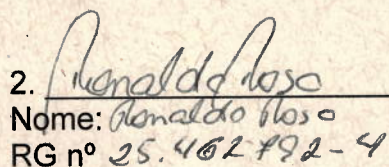 2. Ronaldo Rosa
Nome: Ronaldo Rosa
RG nº 25.462792-4